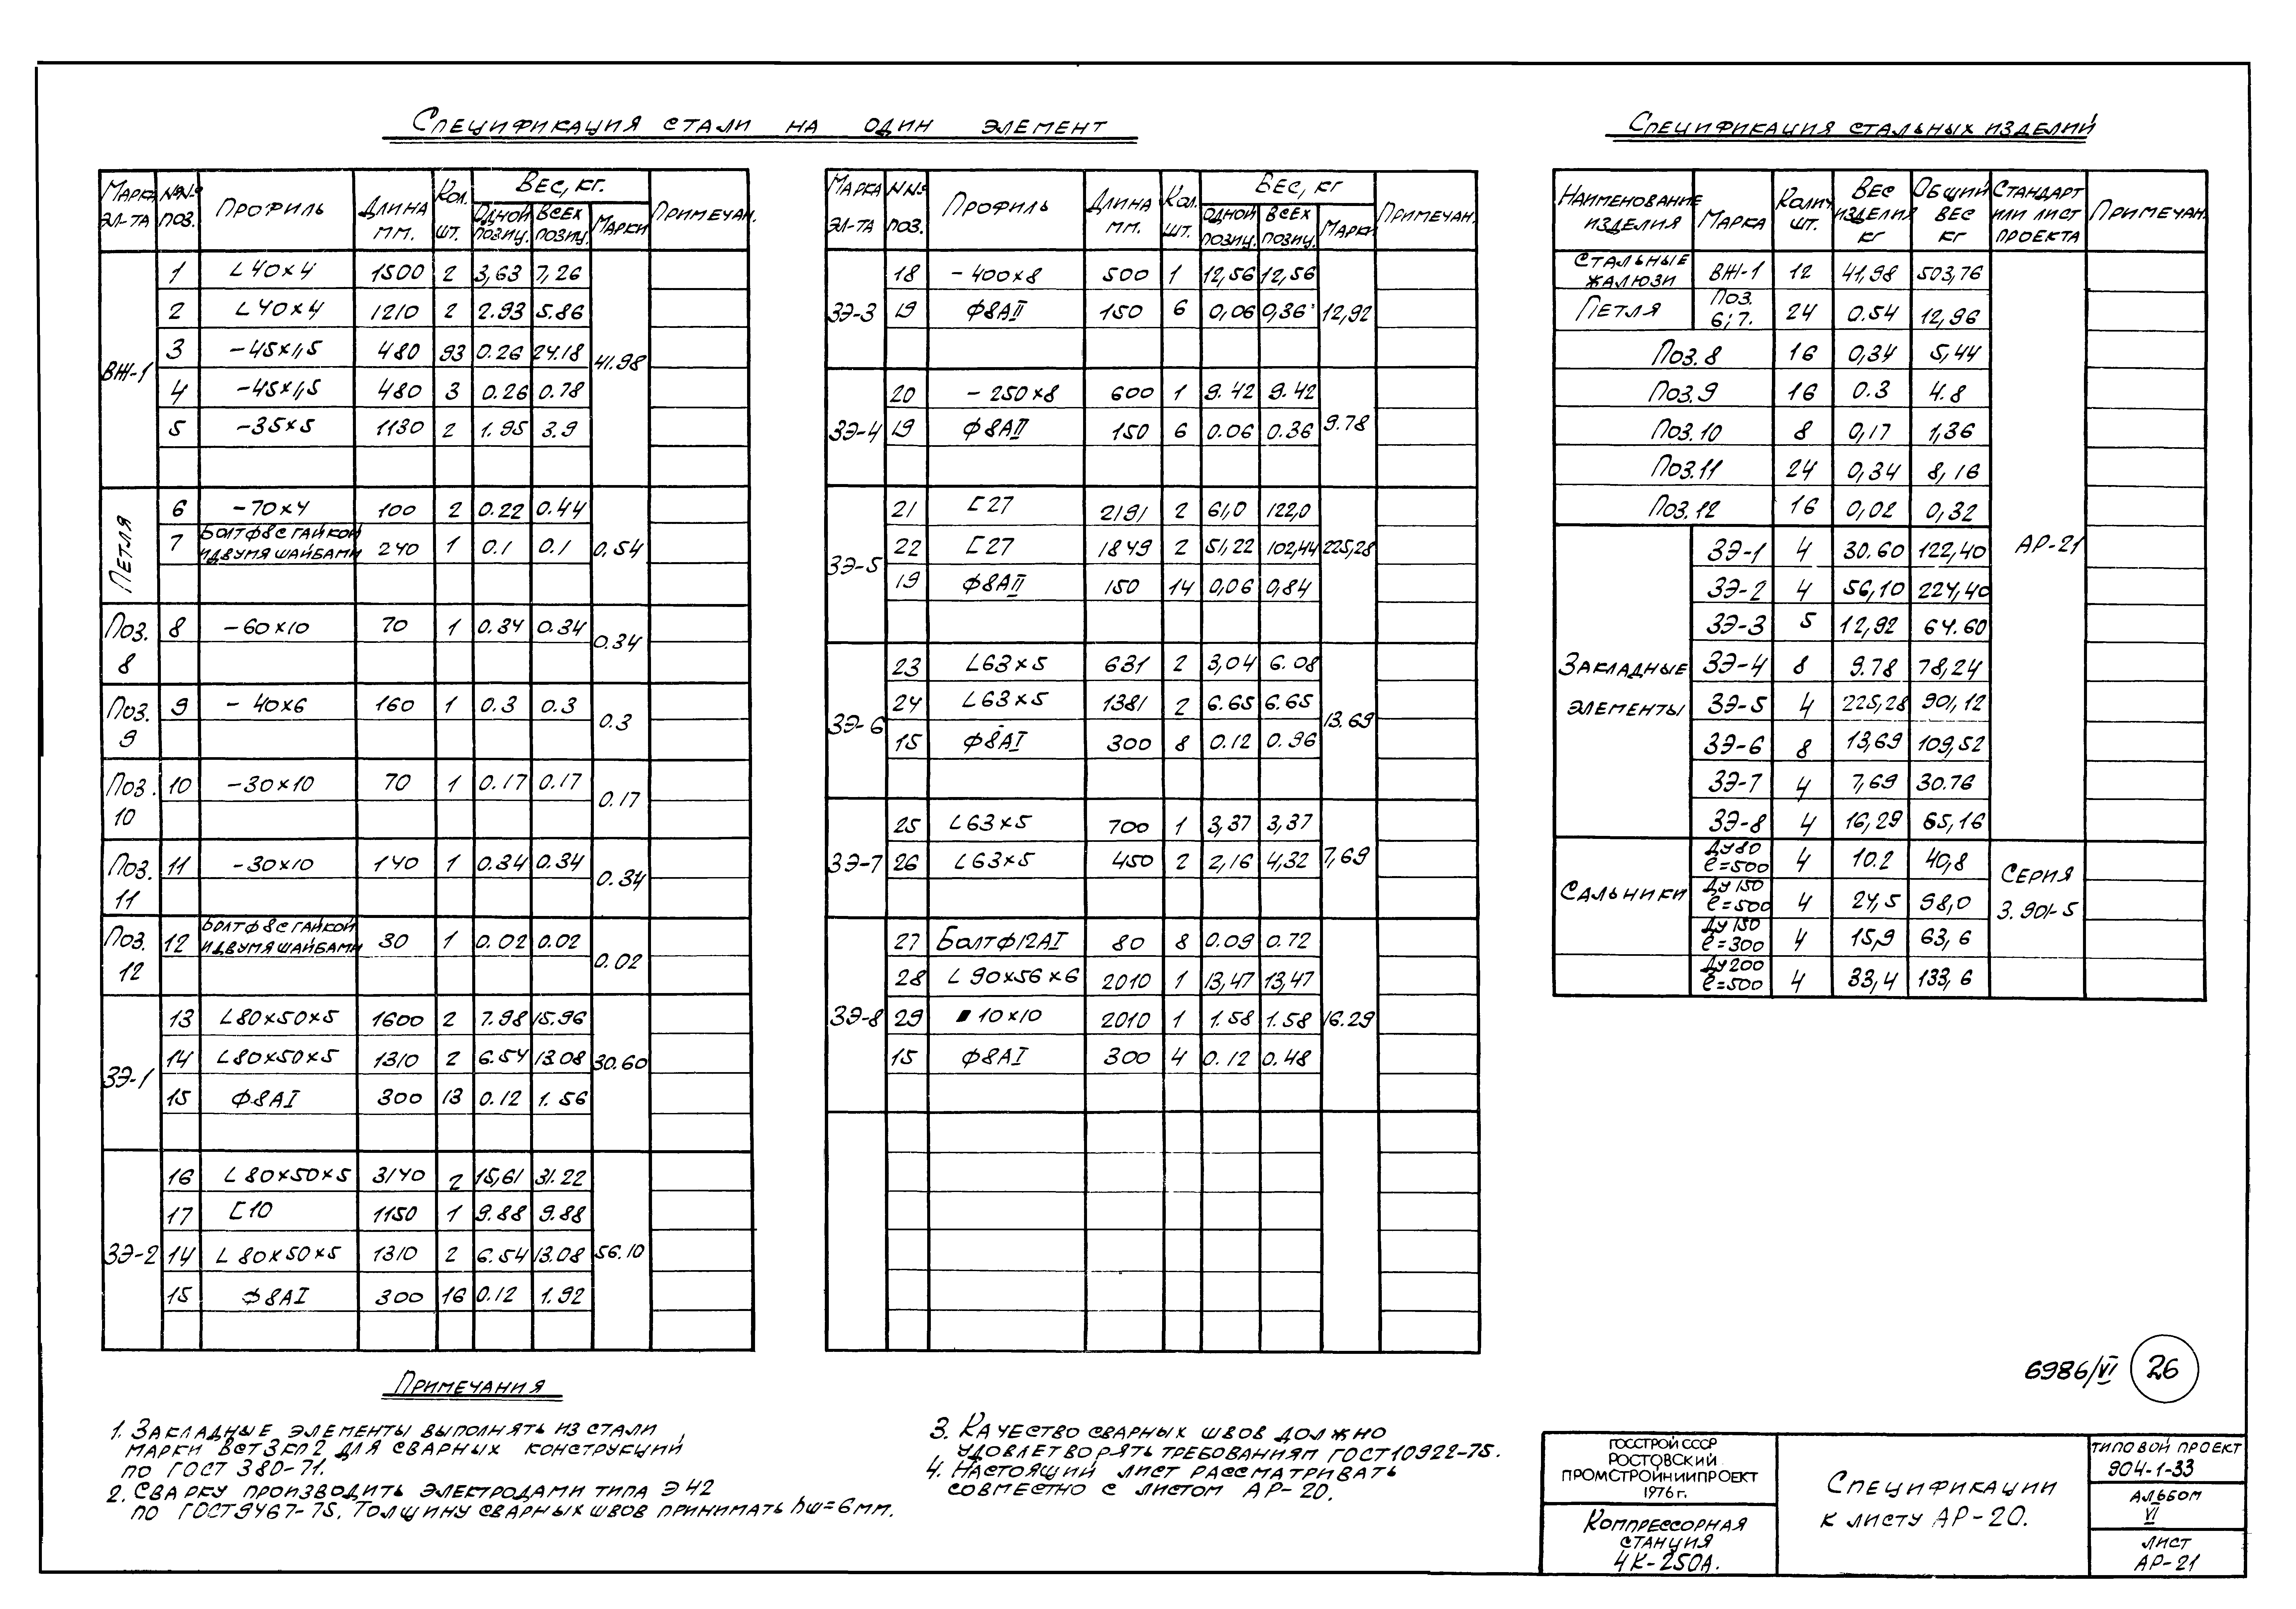 Спецификация стали на один элемент
Марка эл-та | №№ поз. | Профиль | Длина мм. | Кол. шт. | Вес, кг. | Примечан.
Одной позиц. | Всех позиц. | Марки
ВЖ-1 | 41.98
1 | L 40×4 | 1500 | 2 | 3,63 | 7,26
2 | L 40×4 | 1210 | 2 | 2.93 | 5.86
3 | -45×1,5 | 480 | 93 | 0.26 | 24.18
4 | -45×1,5 | 480 | 3 | 0.26 | 0.78
5 | -35×5 | 1130 | 2 | 1.95 | 3.9
Петля | 0,54
6 | -70×4 | 100 | 2 | 0.22 | 0.44
7 | Болт ф8 с гайкой и двумя шайбами | 240 | 1 | 0.1 | 0.1
Поз. 8 | 8 | -60×10 | 70 | 1 | 0.34 | 0.34 | 0.34
Поз. 9 | 9 | - 40×6 | 160 | 1 | 0.3 | 0.3 | 0.3
Поз. 10 | 10 | -30×10 | 70 | 1 | 0.17 | 0.17 | 0.17
Поз. 11 | 11 | -30×10 | 140 | 1 | 0.34 | 0.34 | 0.34
Поз. 12 | 12 | Болт ф8 с гайкой и двумя шайбами | 30 | 1 | 0.02 | 0.02 | 0.02
ЗЭ-1 | 30.60
13 | L 80×50×5 | 1600 | 2 | 7.98 | 15.96
14 | L 80×50×5 | 1310 | 2 | 6.54 | 13.08
15 | Ф8АI | 300 | 13 | 0.12 | 1.56
ЗЭ-2 | 56.10
16 | L 80×50×5 | 3140 | 2 | 15,61 | 31.22
17 | [ 10 | 1150 | 1 | 9.88 | 9.88
14 | L 80×50×5 | 1310 | 2 | 6.54 | 13.08
15 | Ф8АI | 300 | 16 | 0.12 | 1.92
Марка эл-та | №№ поз. | Профиль | Длина мм. | Кол. шт. | Вес, кг | Примечан.
Одной позиц. | Всех позиц. | Марки
ЗЭ-3 | 12,92
18 | - 400×8 | 500 | 1 | 12,56 | 12,56
19 | Ф8АII | 150 | 6 | 0,06 | 0,36
ЗЭ-4 | 9.78
20 | - 250×8 | 600 | 1 | 9.42 | 9.42
19 | Ф8АII | 150 | 6 | 0.06 | 0.36
ЗЭ-5 | 225,28
21 | [ 27 | 2191 | 2 | 61,0 | 122,0
22 | [ 27 | 1849 | 2 | 51,22 | 102,44
19 | Ф8АII | 150 | 14 | 0,06 | 0,84
ЗЭ-6 | 13.69
23 | L63×5 | 631 | 2 | 3,04 | 6.08
24 | L63×5 | 1381 | 2 | 6.65 | 6.65
15 | Ф8АI | 300 | 8 | 0.12 | 0.96
ЗЭ-7 | 7,69
25 | L63×5 | 700 | 1 | 3,37 | 3,37
26 | L63×5 | 450 | 2 | 2,16 | 4,32
ЗЭ-8 | 16.29
27 | Болт ф12АI | 80 | 8 | 0.09 | 0.72
28 | L 90×56×6 | 2010 | 1 | 13,47 | 13,47
29 | ■ 10×10 | 2010 | 1 | 1.58 | 1.58
15 | Ф8АI | 300 | 4 | 0.12 | 0.48
Спецификация стальных изделий
Наименование изделия | Марка | Колич шт. | Вес изделия кг | Общий вес кг | Стандарт или лист проекта | Примечан.
Стальные жалюзи | ВЖ-1 | 12 | 41,98 | 503,76
Петля | Поз. 6; 7. | 24 | 0.54 | 12,96
Поз. 8 | 16 | 0,34 | 5,44
Поз. 9 | 16 | 0.3 | 4.8
Поз. 10 | 8 | 0,17 | 1,36
Поз. 11 | 24 | 0,34 | 8,16
Поз. 12 | 16 | 0,02 | 0,32
АР-21
Закладные элементы
ЗЭ-1 | 4 | 30.60 | 122,40
ЗЭ-2 | 4 | 56,10 | 224,40
ЗЭ-3 | 5 | 12,92 | 64.60
ЗЭ-4 | 8 | 9.78 | 78,24
ЗЭ-5 | 4 | 225,28 | 901,12
ЗЭ-6 | 8 | 13,69 | 109,52
ЗЭ-7 | 4 | 7,69 | 30.76
ЗЭ-8 | 4 | 16,29 | 65,16
Сальники | Серия 3.901-5
Ду80 ℓ=500 | 4 | 10.2 | 40,8
Ду150 ℓ=500 | 4 | 24,5 | 98,0
Ду150 ℓ=300 | 4 | 15,9 | 63,6
Ду200 ℓ=500 | 4 | 33,4 | 133,6
Примечания
1. Закладные элементы выполнять из стали
марки ВСт3кп2 для сварных конструкций
по ГОСТ 380-71.
2. Сварку производить электродами типа Э42
по ГОСТ 9467-75. Толщину сварных швов принимать hш=6мм.
3. Качество сварных швов должно
удовлетворять требованиям ГОСТ 10922-75.
4. Настоящий лист рассматривать
совместно с листом АР-20.
6986/VI 26
Госстрой СССР
Ростовский
Промстройниипроект
1976 г.
Компрессорная
станция
4К-250А.
Спецификации
к листу АР-20.
Типовой проект
904-1-33
Альбом
VI
Лист
АР-21